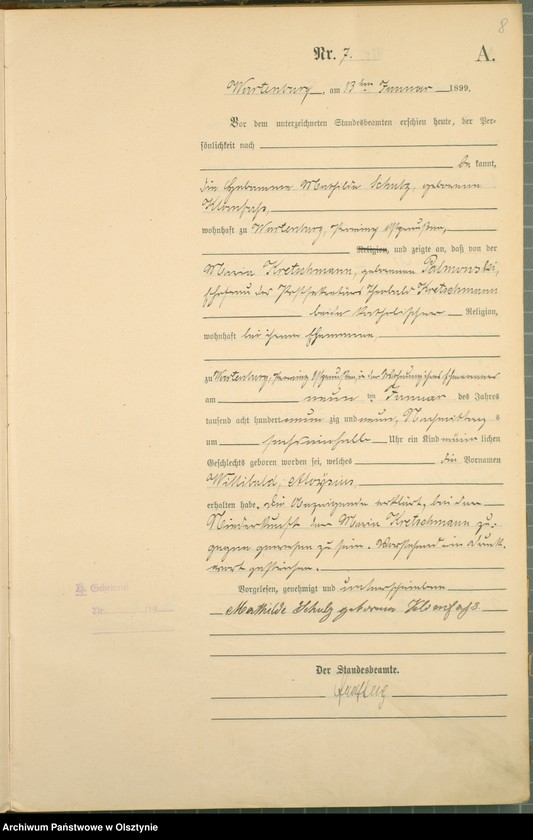 8
Nr. 7.
A.
Wartenburg, am 13ten Januar 1899.
Vor dem unterzeichneten Standesbeamten erschien heute, der Per-
sönlichkeit nach
be kannt,
die Hebamme Mathilde Schulz, geborenen
wohnhaft zu Wartenburg, Provinz Ostpreußen,
Religion, und zeigte an, daß von der
Maria Kretschmann, geborenen Palmowski,
Ehefrau des Postsekretärs Theobald Kretschmann
beide katholischer Religion,
wohnhaft bei ihrem Ehemanne,
zu Wartenburg, Provinz Ostpreußen, in der Wohnung ihres Ehemannes
am neun ten Januar des Jahres
tausend acht hundert neun zig und neun, Nachmittag s
um sechs einhalb Uhr ein Kind männ lichen
Geschlechts geboren worden sei, welches die Vornamen
Willibald, Aloysius
erhalten habe. Die Anzeigende erklärt, bei der
Niederkunft der Maria Kretschmann zu-
gegen gewesen zu sein. Vorstehend ein Druck-
wort gestrichen.
Vorgelesen, genehmigt und unterschrieben
Mathilde Schulz geborene
Der Standesbeamte.
Archiwum Państwowe w Olsztynie